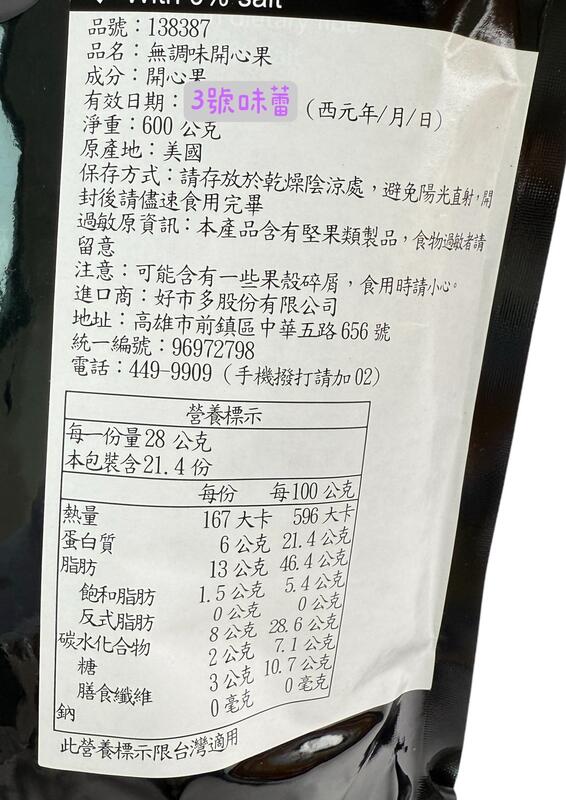 With 0% salt
品號：138387
品名：無調味開心果
成分：開心果
有效日期：3號味蕾（西元年/月/日）
淨重：600 公克
原產地：美國
保存方式：請存放於乾燥陰涼處，避免陽光直射，開
封後請儘速食用完畢
過敏原資訊：本產品含有堅果類製品，食物過敏者請
留意
注意：可能含有一些果殼碎屑，食用時請小心。
進口商：好市多股份有限公司
地址：高雄市前鎮區中華五路 656 號
統一編號：96972798
電話：449-9909（手機撥打請加 02）
營養標示
每一份量 28 公克
本包裝含 21.4 份
每份 每 100 公克
熱量 167 大卡 596 大卡
蛋白質 6 公克 21.4 公克
脂肪 13 公克 46.4 公克
飽和脂肪 1.5 公克 5.4 公克
反式脂肪 0 公克 0 公克
碳水化合物 8 公克 28.6 公克
糖 2 公克 7.1 公克
膳食纖維 3 公克 10.7 公克
鈉 0 毫克 0 毫克
此營養標示限台灣適用